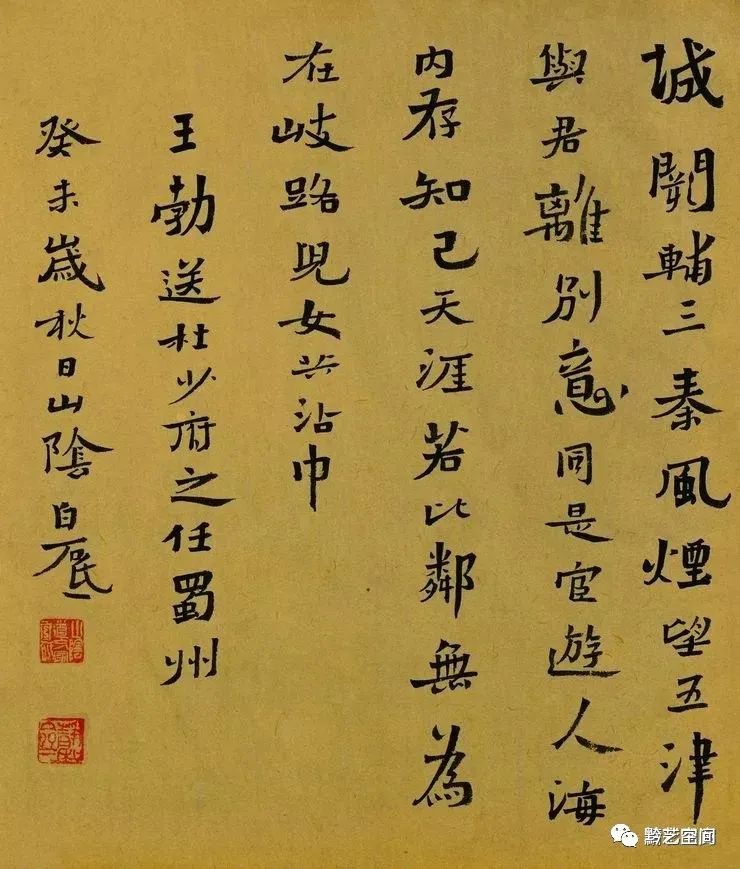 城闕輔三秦風煙望五津
與君離別意同是宦遊人海
内存知己天涯若比鄰無為
在岐路兒女共沾巾
王勃送杜少府之任蜀州
癸未歲秋日山陰白
黔艺空间